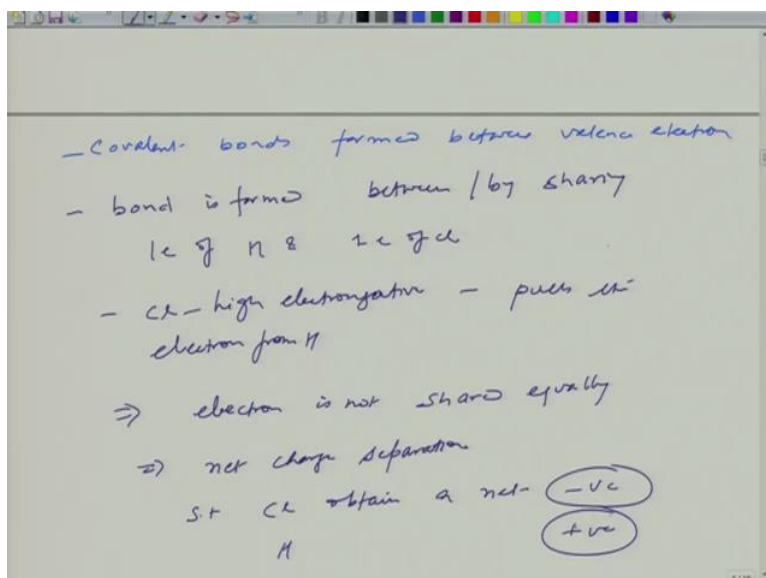 - Covalent bonds formed between valence electron
- bond is formed between / by sharing
1e of H & 1e of Cl
- Cl - high electronegative - pulls the
electron from H
⇒ electron is not shared equally
⇒ net charge separation
S.t Cl obtain a net -ve
H +ve